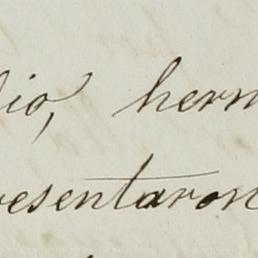 lio, herm
resentaron